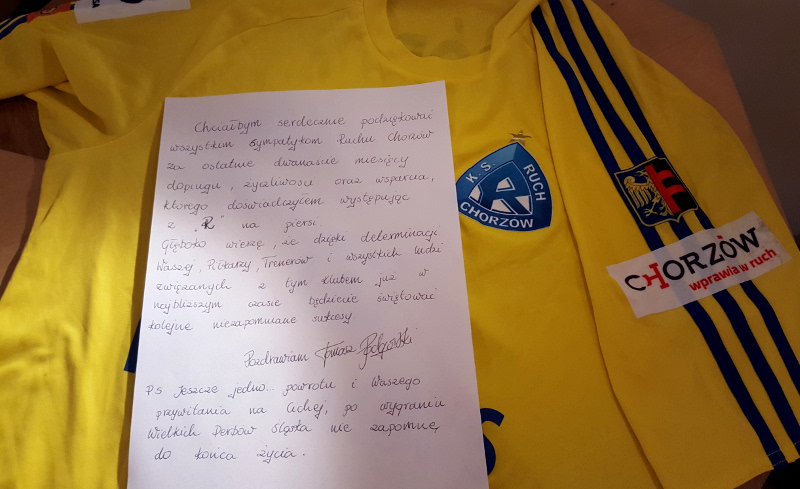 Chciałbym serdecznie podziękować
wszystkim sympatykom Ruchu Chorzów
za ostatnie dwanaście miesięcy
dopingu, życzliwości oraz wsparcia,
którego doświadczyłem występując
z „R" na piersi
Głęboko wierzę, że dzięki determinacji
Waszej, Piłkarzy, Trenerów i wszystkich ludzi
związanych z tym klubem już w
najbliższym czasie będziecie świętować
kolejne niezapomniane sukcesy
Pozdrawiam Tomasz Podgórski
PS Jeszcze jedno... powrotu i Waszego
przywitania na Cichej, po wygraniu
Wielkich Derbów Śląska nie zapomnę
do końca życia.
K.S RUCH
CHORZÓW
CHORZÓW
wprawia w ruch